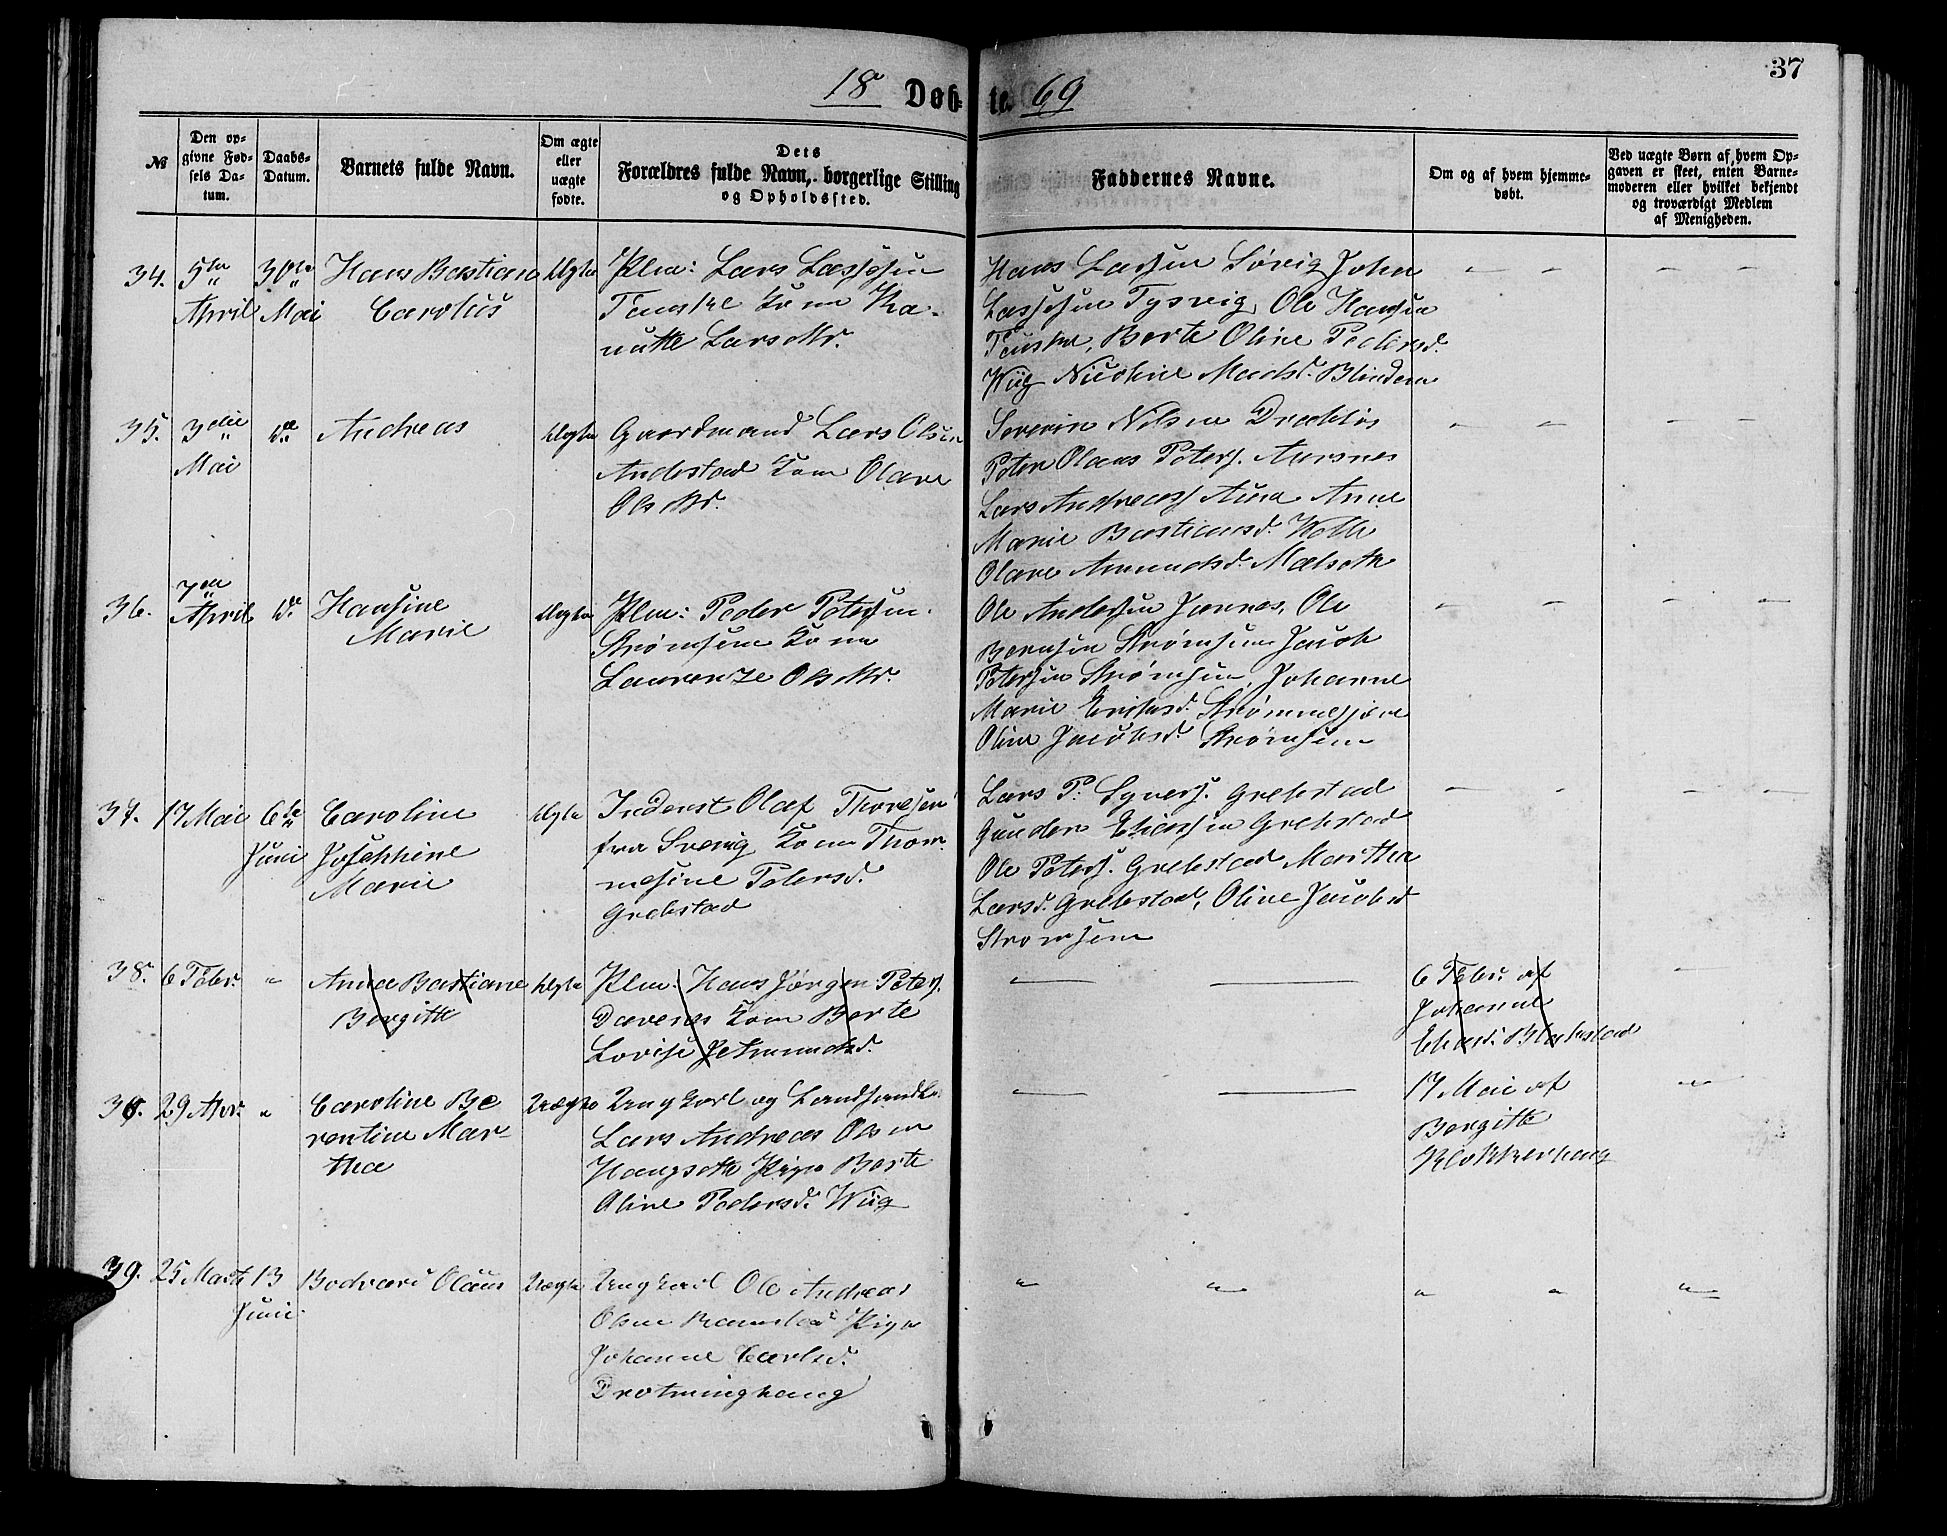 37
18 Døb- te. 69
№
Den op-
givne Fød-
sels Da-
tum.
Daabs-
Datum.
Barnets fulde Navn.
Om ægte
eller
uægte
fødte.
Dets
Forældres fulde Navn, borgerlige Stilling
og Opholdssted.
Faddernes Navne.
Om og af hvem hjemme-
døbt.
Ved uægte Børn af hvem Op-
gaven er skeet, enten Barne-
moderen eller hvilket bekjendt
og troværdigt Medlem
af Menigheden.
34. 5te April
30te Mai
Hans Bastian
Carolus
Ægte
Plm: Lars Lassesen
Fauske Kone
Lars Mr.
Hans Larsen Søvig John
Lassesen Tysvig, Ole Hansen
Fauske, Berte Oline Pedersd.
Wiig Nicoline Madsd. Blindem
35. 3die Mai
do
Andreas
Ægte
Gaardmand Lars Olsen
Andestad Kone Olave
Ols Mr.
Severin Nilsen Drabløs
Peter Olaus Peters. Aursnes
Lars Andreass Aura Anne
Marie Bastiansd. Welle
Olave Amundsd. Mælseth
36. 7de April
do
Hansine
Marie
Ægte
Plm: Peder Petersen
Strømsem Kone
Laurenze Ols Mr.
Ole Andersen Jarnes, Ole
Berntsen Strømsem Jacob
Petersen Strømsem, Johanne
Marie Eriksd. Strømmegjære
Oline Jacobsd. Strømsem
37. 17 Mai
6te Juni
Caroline
Josephine
Marie
Ægte
Inderst Olaf Thoresen
fra Svenig Kone Thom-
mesine Petersd.
Grebstad
Lars P. Syvers. Grebstad
Gunder Eliassen Grebstad
Ole Peters. Grebstad Marthe
Larsd. Grebstad, Oline Jacobsd
Strømsem
38. 6 Febr. "
Anna Bastiane
Bergitte
Ægte
Plm. Hans Jørgen Peters.
Davenes Kone Berte
Lovise
6 Febr. af
Johanne
Eliasd. Blakstad
39. 29 Apr. "
Caroline Be
rentine Mar-
tha
Uægte
Ungkarl og Landhandl.
Lars Andreas Olsen
Haugseth Pige Berte
Oline Pedersd. Wiig
17 Mai af
Bergitte
Klokkerhaug
39. 25 Marts
13 Juni
Bodvari Olaus
Uægte
Ungkarl Ole Andreas
Olsen Ramstad Pige
Johanne Carlsd.
Drotninghaug